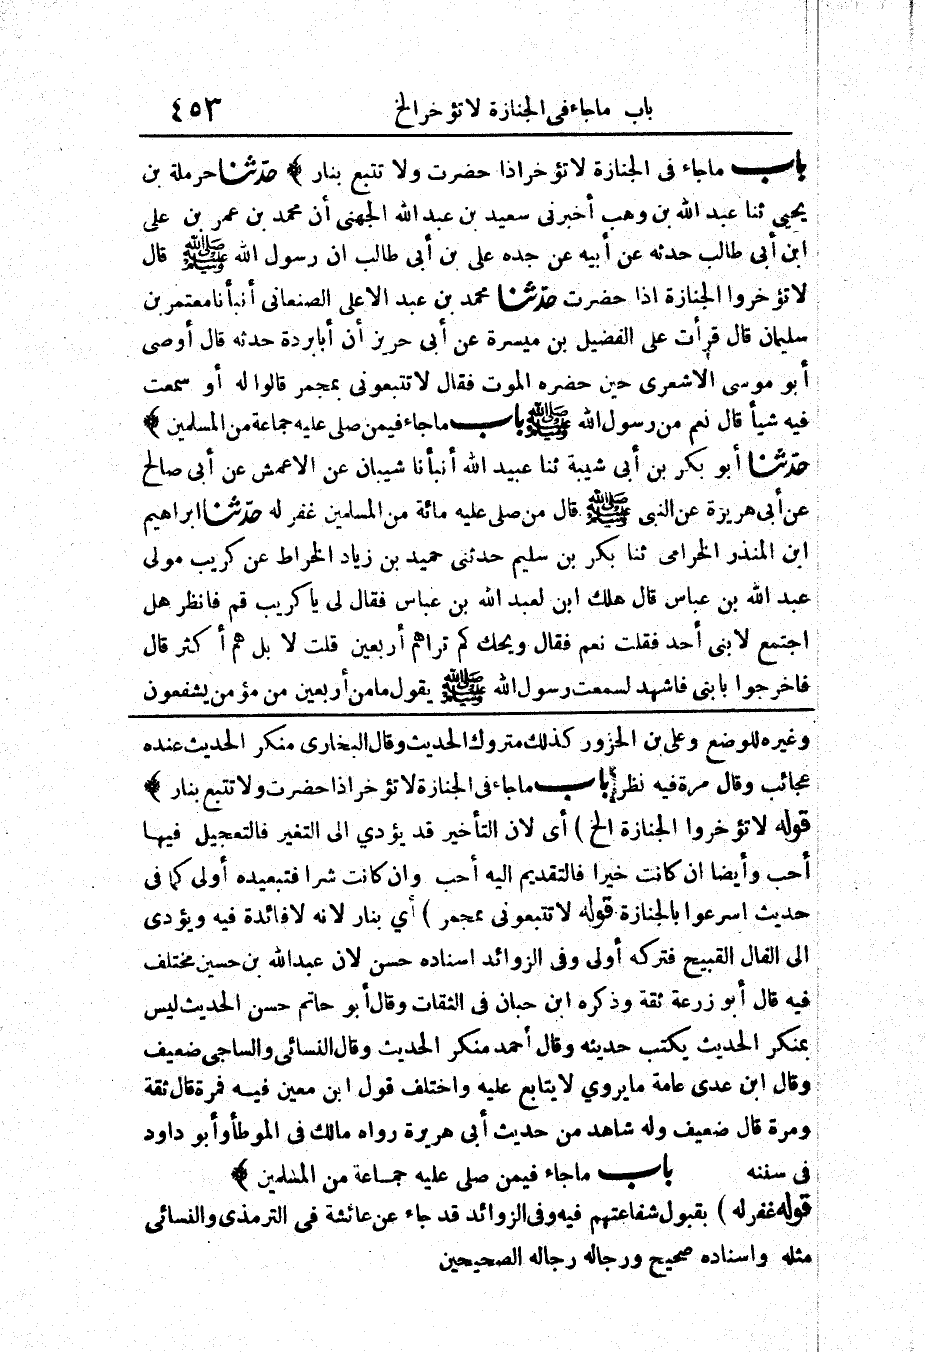 باب ماجاء فى الجنازة لا تؤخر الخ ٤٥٣
باب ماجاء فى الجنازة لا تؤخر اذا حضرت ولا تتبع بنار ﴾ حدّثنا حرملة بن
يحيى ثنا عبد الله بن وهب أخبرنى سعيد بن عبد الله الجهنى أن محمد بن عمر بن على
ابن أبى طالب حدثه عن أبيه عن جده على بن أبى طالب ان رسول الله ﷺ قال
لا تؤخروا الجنازة اذا حضرت حدّثنا محمد بن عبد الاعلى الصنعانى أنبأنا معتمر بن
سليمان قال قرأت على الفضيل بن ميسرة عن أبى حريز أن أبا بردة حدثه قال أوصى
أبو موسى الاشعرى حين حضره الموت فقال لا تتبعونى بمجمر قالوا له أو سمعت
فيه شيأ قال نعم من رسول الله ﷺ باب ماجاء فيمن صلى عليه جماعة من المسلمين ﴾
حدّثنا أبو بكر بن أبى شيبة ثنا عبيد الله أنبأنا شيبان عن الاعمش عن أبى صالح
عن أبى هريرة عن النبى ﷺ قال من صلى عليه مائة من المسلمين غفر له حدّثنا ابراهيم
ابن المنذر الخرامى ثنا بكر بن سليم حدثنى حميد بن زياد الخراط عن كريب مولى
عبد الله بن عباس قال هلك ابن لعبد الله بن عباس فقال لى يا كريب قم فانظر هل
اجتمع لابنى أحد فقلت نعم فقال ويحك كم تراهم أربعين قلت لا بل هم أكثر قال
فاخرجوا بابنى فاشهد لسمعت رسول الله ﷺ يقول مامن أربعين من مؤمن يشفعون
وغيره للوضع وعلى بن الحزور كذلك متروك الحديث وقال البخارى منكر الحديث عنده
عجائب وقال مرة فيه نظر باب ماجاء فى الجنازة لا تؤخر اذا حضرت ولا تتبع بنار ﴾
قوله لا تؤخروا الجنازة الخ ) أى لان التأخير قد يؤدي الى التغير فالتعجيل فيها
أحب وأيضا ان كانت خيرا فالتقديم اليه أحب وان كانت شرا فتبعيده أولى كما فى
حديث اسرعوا بالجنازة قوله لا تتبعونى بمجمر ) أي بنار لانه لا فائدة فيه ويؤدى
الى الفال القبيح فتركه أولى وفى الزوائد اسناده حسن لان عبد الله بن حسين مختلف
فيه قال أبو زرعة ثقة وذكره ابن حبان فى الثقات وقال أبو حاتم حسن الحديث ليس
بمنكر الحديث يكتب حديثه وقال أحمد منكر الحديث وقال النسائى والساجى ضعيف
وقال ابن عدى عامة مايروي لا يتابع عليه واختلف قول ابن معين فيه فمرة قال ثقة
ومرة قال ضعيف وله شاهد من حديث أبى هريرة رواه مالك فى الموطأ وأبو داود
فى سننه باب ماجاء فيمن صلى عليه جماعة من المسلمين ﴾
قوله غفر له ) بقبول شفاعتهم فيه وفى الزوائد قد جاء عن عائشة فى الترمذى والنسائى
مثله واسناده صحيح ورجاله رجاله الصحيحين